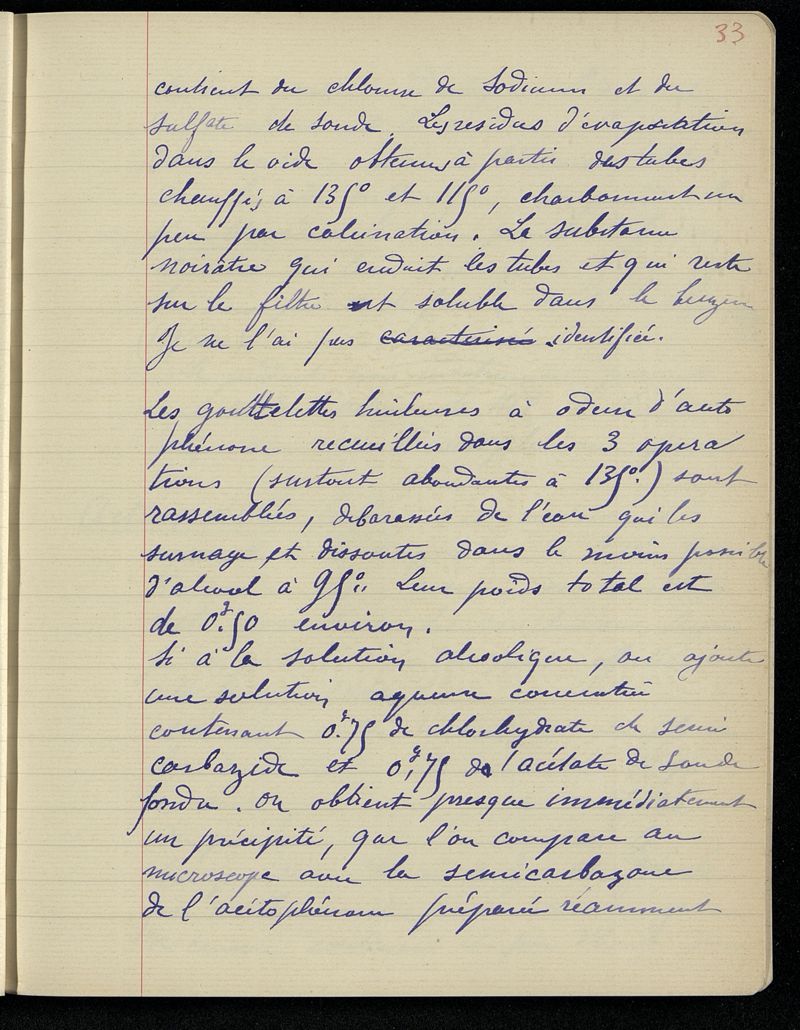 33
contient du chlorure de Sodium et du
sulfate de soude. Les résidus d'évaporation
dans le vide obtenus à partir des tubes
chauffés à 135° et 115°, charbonnent un
peu par calcination. La substance
noirâtre qui enduit les tubes et qui reste
sur le filtre est soluble dans le benzène
Je ne l'ai pas caracterisé identifiée.
Les gouttelettes huileuses à odeur d'aceto
phénone recueillies dans les 3 opera
tions (surtout abondantes à 135°.) sont
rassemblées, debarassées de l'eau qui les
surnage et dissoutes dans le moins possible
d'alcool à 95°. Leur poids total est
de 0g.50 environ.
Si à la solution alcoolique, on ajoute
une solution aqueuse concentrée
contenant 0g.75 de chlorhydrate de semi
carbazide et 0g,75 de l'acétate de Soude
fondu. On obtient presque immédiatement
un précipité, que l'on compare au
microscope avec la semicarbazone
de l'acétophénone préparée récemment